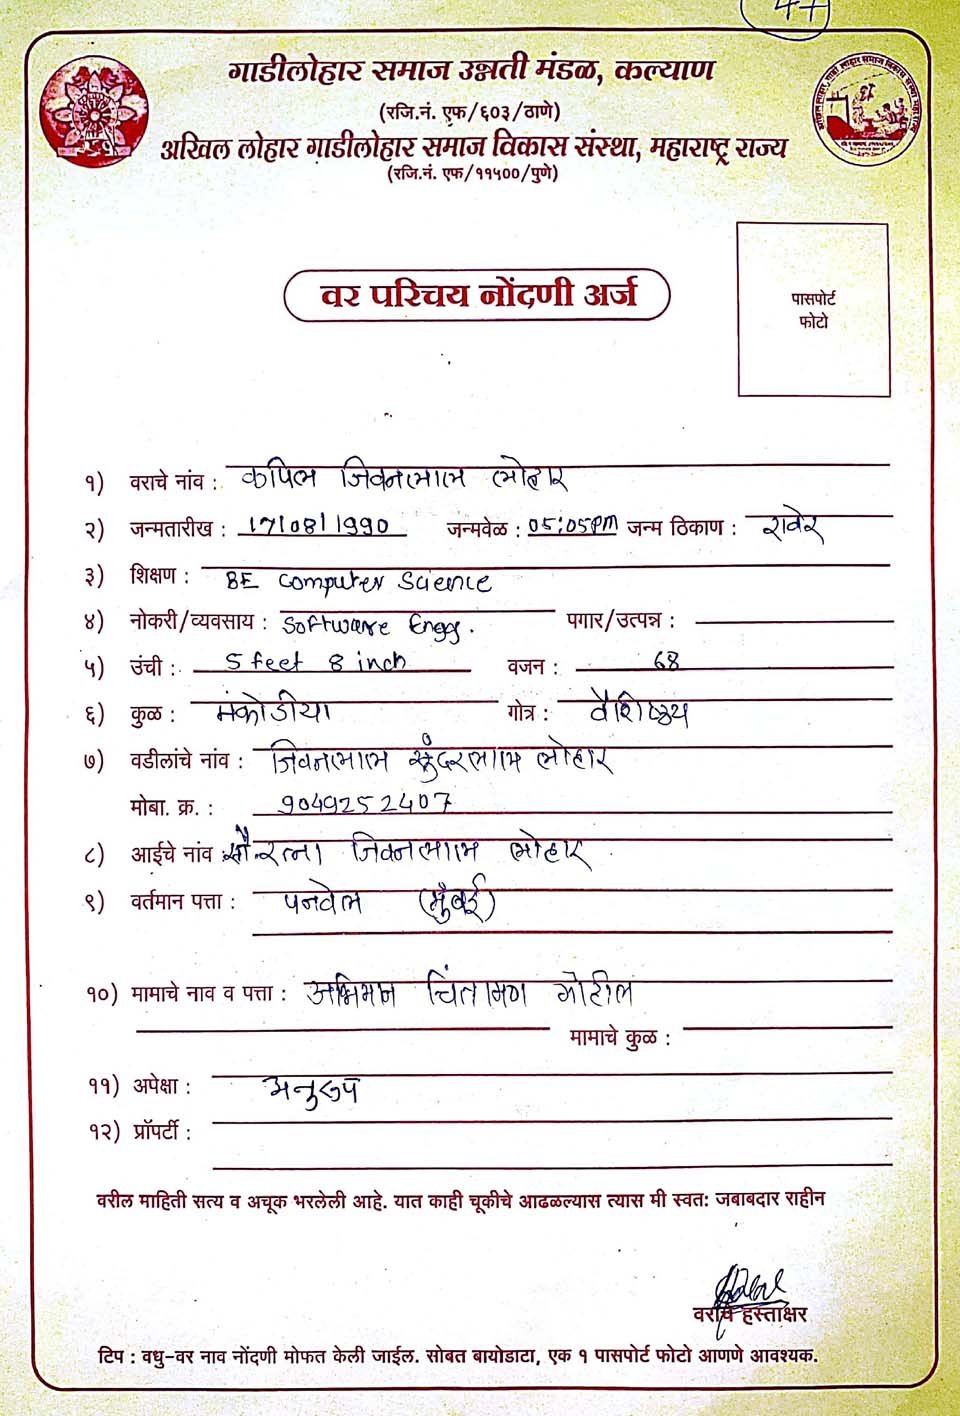 47
गाडीलोहार समाज उन्नती मंडळ, कल्याण
(रजि.नं. एफ/६०३/ठाणे)
अखिल लोहार गाडीलोहार समाज विकास संस्था, महाराष्ट्र राज्य
(रजि.नं. एफ/११५००/पुणे)
वर परिचय नोंदणी अर्ज
पासपोर्ट
फोटो
१) वराचे नांव : कपिल जिवनलाल लोहार
२) जन्मतारीख : 17/08/1990 जन्मवेळ : 05:05PM जन्म ठिकाण : रावेर
३) शिक्षण : BE Computer Science
४) नोकरी/व्यवसाय : Software Engg. पगार/उत्पन्न :
५) उंची : 5 feet 8 inch वजन : 68
६) कुळ : मंकोडीया गोत्र :
७) वडीलांचे नांव : जिवनलाल सुंदरलाल लोहार
मोबा. क्र. : 9049252407
८) आईचे नांव : सौ. रत्ना जिवनलाल लोहार
९) वर्तमान पत्ता : पनवेल (मुंबई)
१०) मामाचे नाव व पत्ता : अभिमान चिंतामण गोहील
मामाचे कुळ :
११) अपेक्षा : अनुरूप
१२) प्रॉपर्टी :
वरील माहिती सत्य व अचूक भरलेली आहे. यात काही चूकीचे आढळल्यास त्यास मी स्वत: जबाबदार राहीन
वराचे हस्ताक्षर
टिप : वधु-वर नाव नोंदणी मोफत केली जाईल. सोबत बायोडाटा, एक १ पासपोर्ट फोटो आणणे आवश्यक.